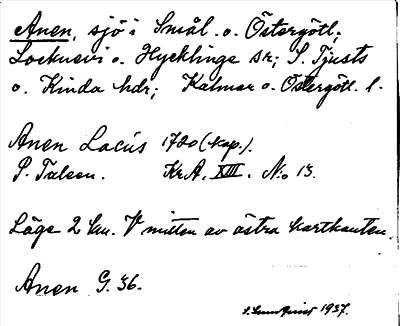 Anen, sjö i Smål. o. Östergötl.
Locknevi o. Hycklinge sr; S. Tjusts
o. Kinda hdr; Kalmar o. Östergötl. l.
Anen Lacus 1720 (kop.).
P. Talcen. KrA. XIII. No 13.
Läge 2 km. V mitten av östra kartkanten.
Anen G. 36.
1937.